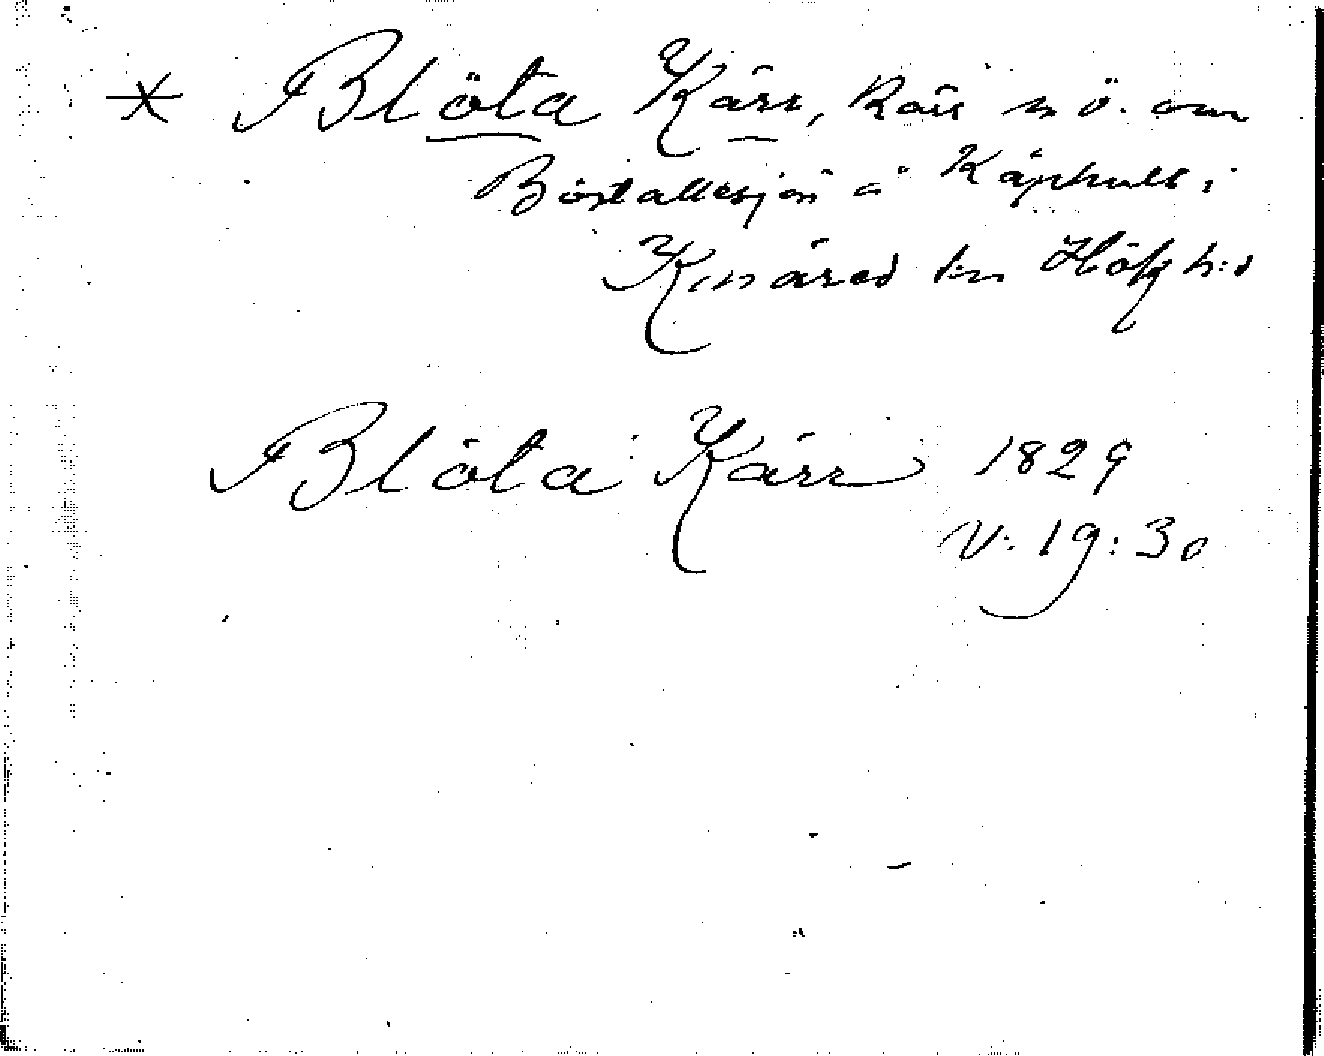 * Blöta Kärr, Kärr n ö. om
Böstallesjön å Kåphult i
Knäred sn Höks h:d
Blöta Kärr 1829
V: 19: 30